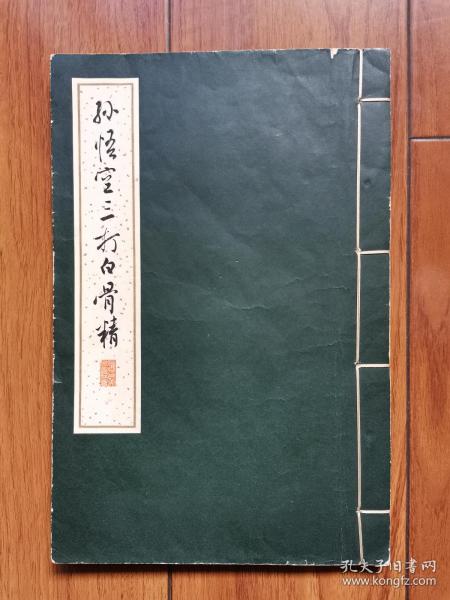 孙悟空三打白骨精
孔夫子旧书网
www.kongfz.com